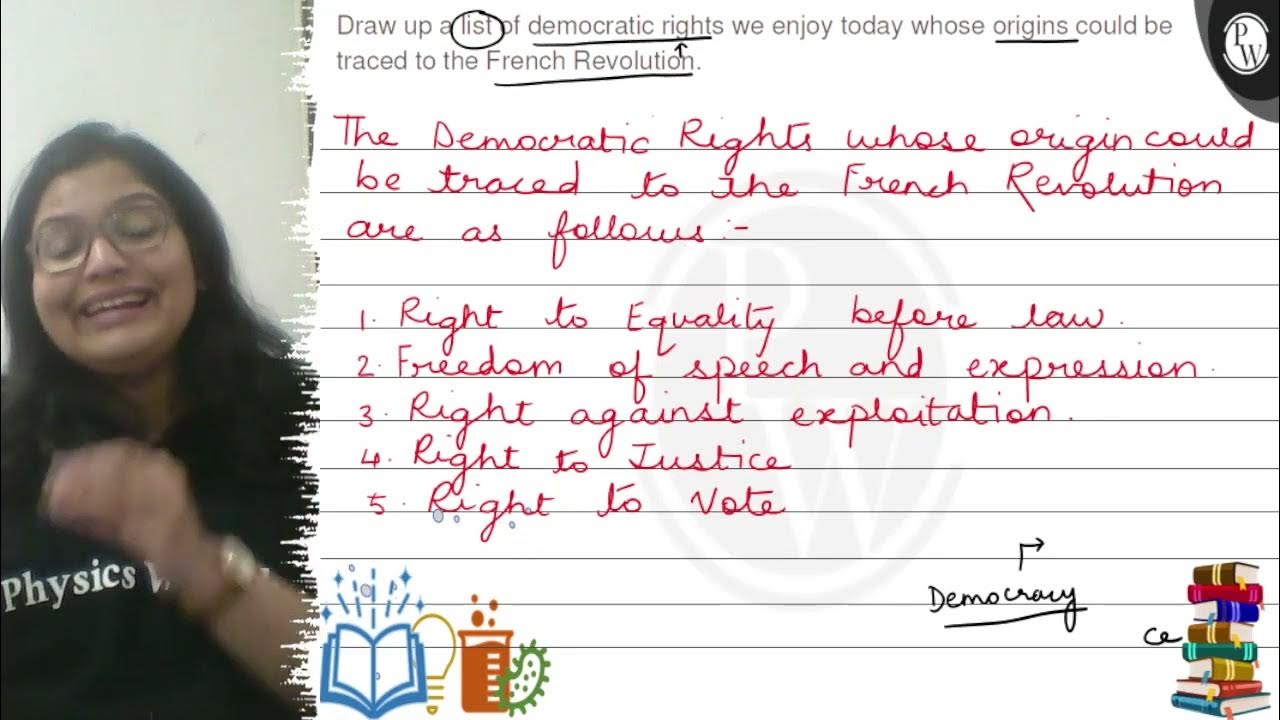 Draw up a list of democratic rights we enjoy today whose origins could be
traced to the French Revolution.
PW
The Democratic Rights whose origin could
be traced to the French Revolution
are as follows :-
1. Right to Equality before law.
2. Freedom of speech and expression.
3. Right against exploitation.
4. Right to Justice
5. Right to Vote
Democracy
ce
Physics W